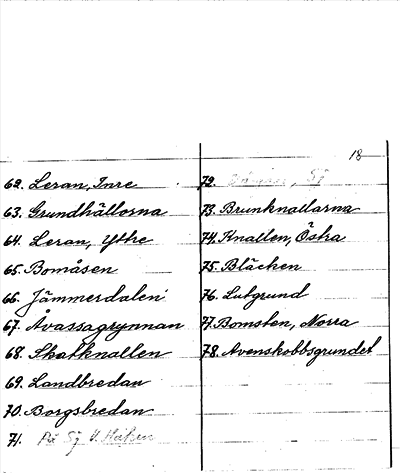 18
62. Leran, Inre
63. Grundhällorna
64. Leran, Yttre
65. Bomåsen
66. Jämmerdalen
67. Åvassagrynnan
68. Skatknallen
69. Landbredan
70. Borgsbredan
71. På Sj
72.
73. Brunknallarna
74. Knallen, Östra
75. Bläcken
76. Lutgrund
77. Bomsten, Norra
78. Avenskobbsgrundet